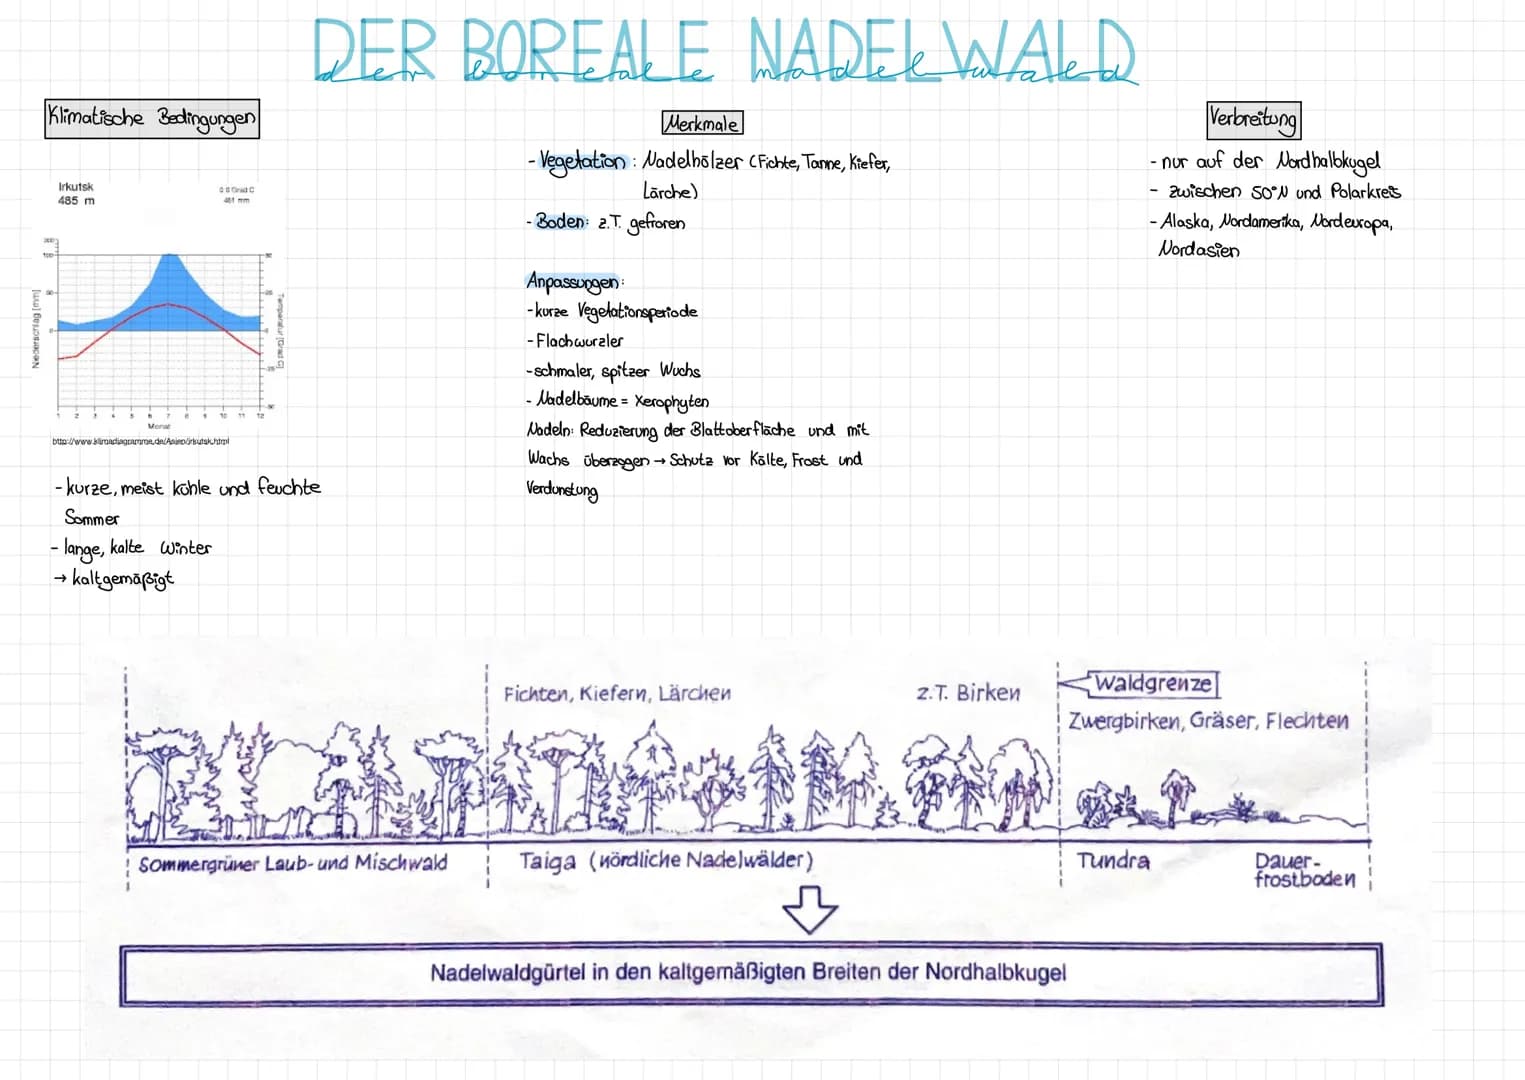 DER BOREALE NADELWALD
der boreale nadelwald
Klimatische Bedingungen
Irkutsk
485 m
461 mm
300
100
50
0
50
25
0
-25
-50
Niederschlag [mm]
Temperatur [Grad C]
1 2 3 4 5 6 7 8 9 10 11 12
Monat
http://www.klimadiagramme.de/Asien/irkutsk.html
- kurze, meist kühle und feuchte
Sommer
- lange, kalte Winter
→ kaltgemäßigt
Merkmale
- Vegetation: Nadelhölzer (Fichte, Tanne, Kiefer,
Lärche)
- Boden: z.T. gefroren
Anpassungen:
- kurze Vegetationsperiode
- Flachwurzler
- schmaler, spitzer Wuchs
- Nadelbäume = Xerophyten
Nadeln: Reduzierung der Blattoberfläche und mit
Wachs überzogen → Schutz vor Kälte, Frost und
Verdunstung
Verbreitung
- nur auf der Nordhalbkugel
- zwischen 50°N und Polarkreis
- Alaska, Nordamerika, Nordeuropa,
Nordasien
Fichten, Kiefern, Lärchen
z.T. Birken
Waldgrenze
Zwergbirken, Gräser, Flechten
Sommergrüner Laub- und Mischwald
Taiga (nördliche Nadelwälder)
Tundra
Dauer-
frostboden
Nadelwaldgürtel in den kaltgemäßigten Breiten der Nordhalbkugel